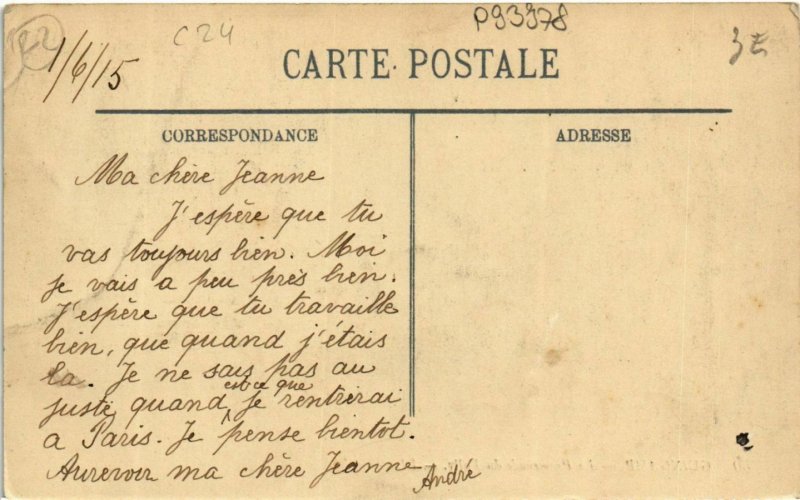 P93978
C24
3E
1/6/15
CARTE POSTALE
CORRESPONDANCE
ADRESSE
Ma chère Jeanne
J'espère que tu
vas toujours bien. Moi
je vais a peu près bien.
J'espère que tu travaille
bien, que quand j'étais
la. Je ne sais pas au
est-ce que
juste quand je rentrerai
a Paris. Je pense bientot.
Aurevoir ma chère Jeanne
André